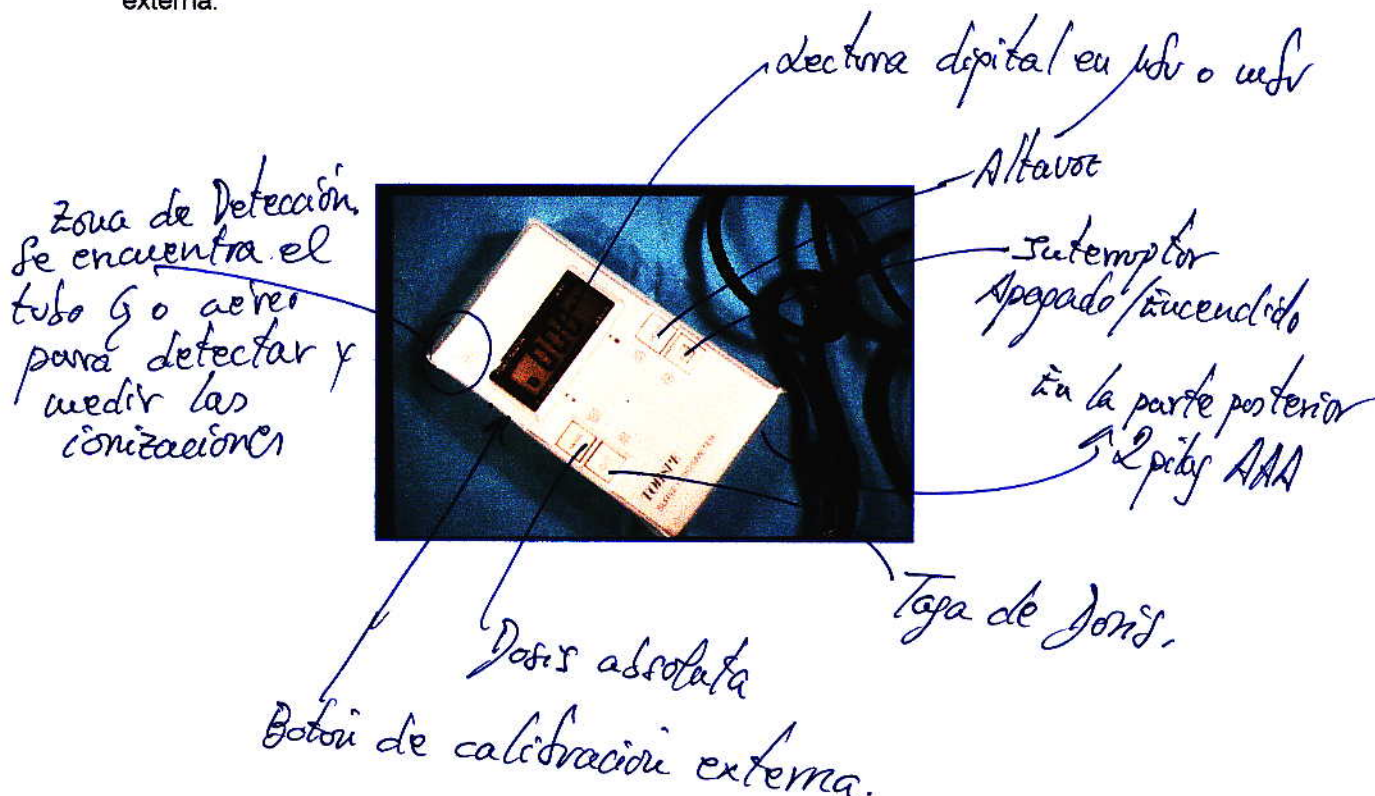 externa.
Lectura digital en μSv o mSv
Altavoz
Interruptor
Apagado/Encendido
En la parte posterior
2 pilas AAA
Tasa de Dosis.
Zona de Detección.
Se encuentra el
tubo G o aereo
para detectar y
medir las
ionizaciones
Dosis absoluta
Botón de calibración externa.